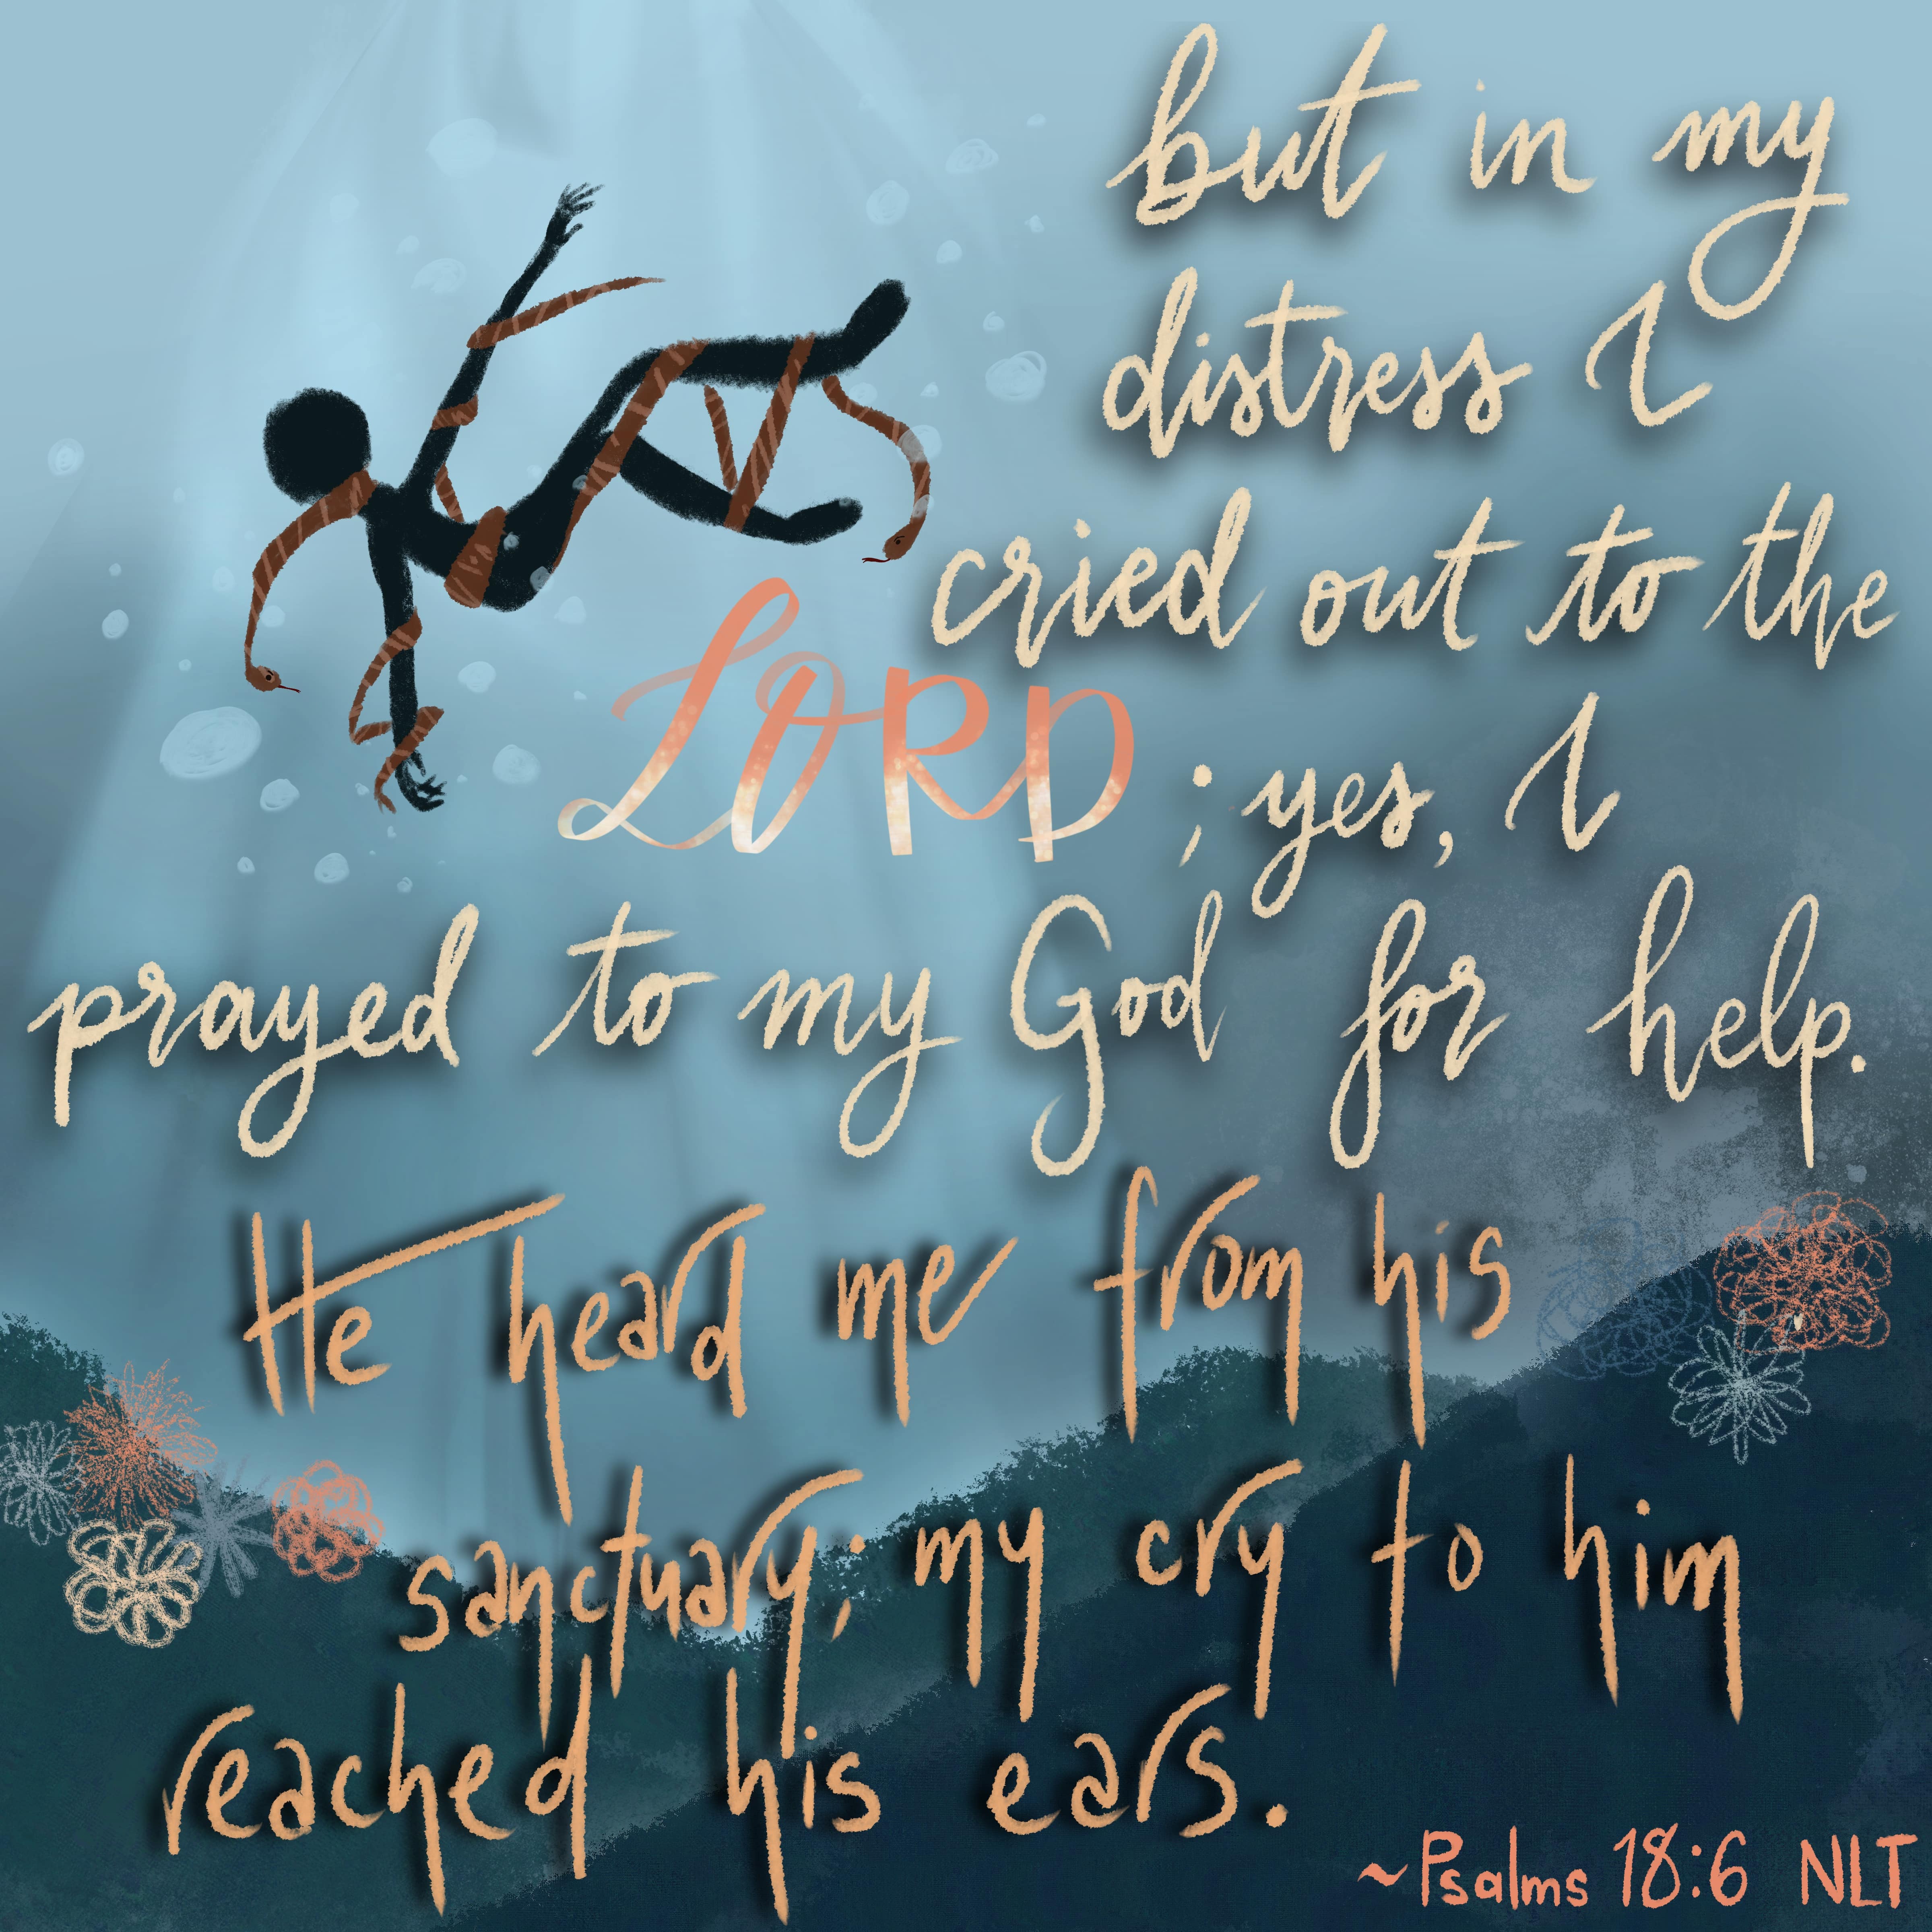 but in my
distress I
cried out to the
LORD; yes, I
prayed to my God for help.
He heard me from his
sanctuary; my cry to him
reached his ears.
~Psalms 18:6 NLT